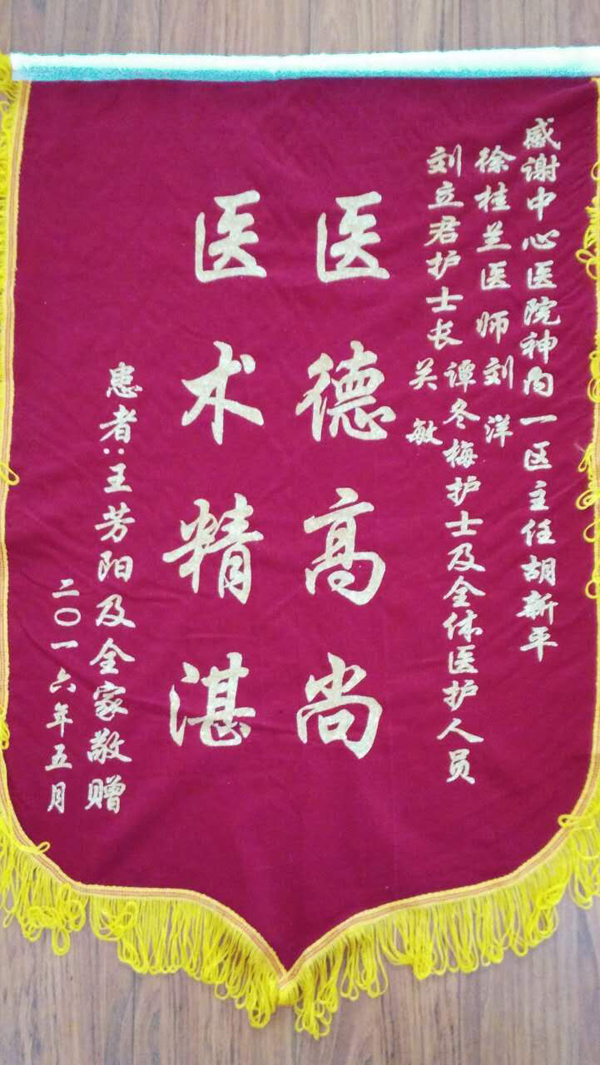 感谢中心医院神内一区主任胡新平
徐桂兰医师刘洋
刘立君护士长谭冬梅护士及全体医护人员
关敏
医德高尚
医术精湛
患者:王芳阳及全家敬赠
二〇一六年五月